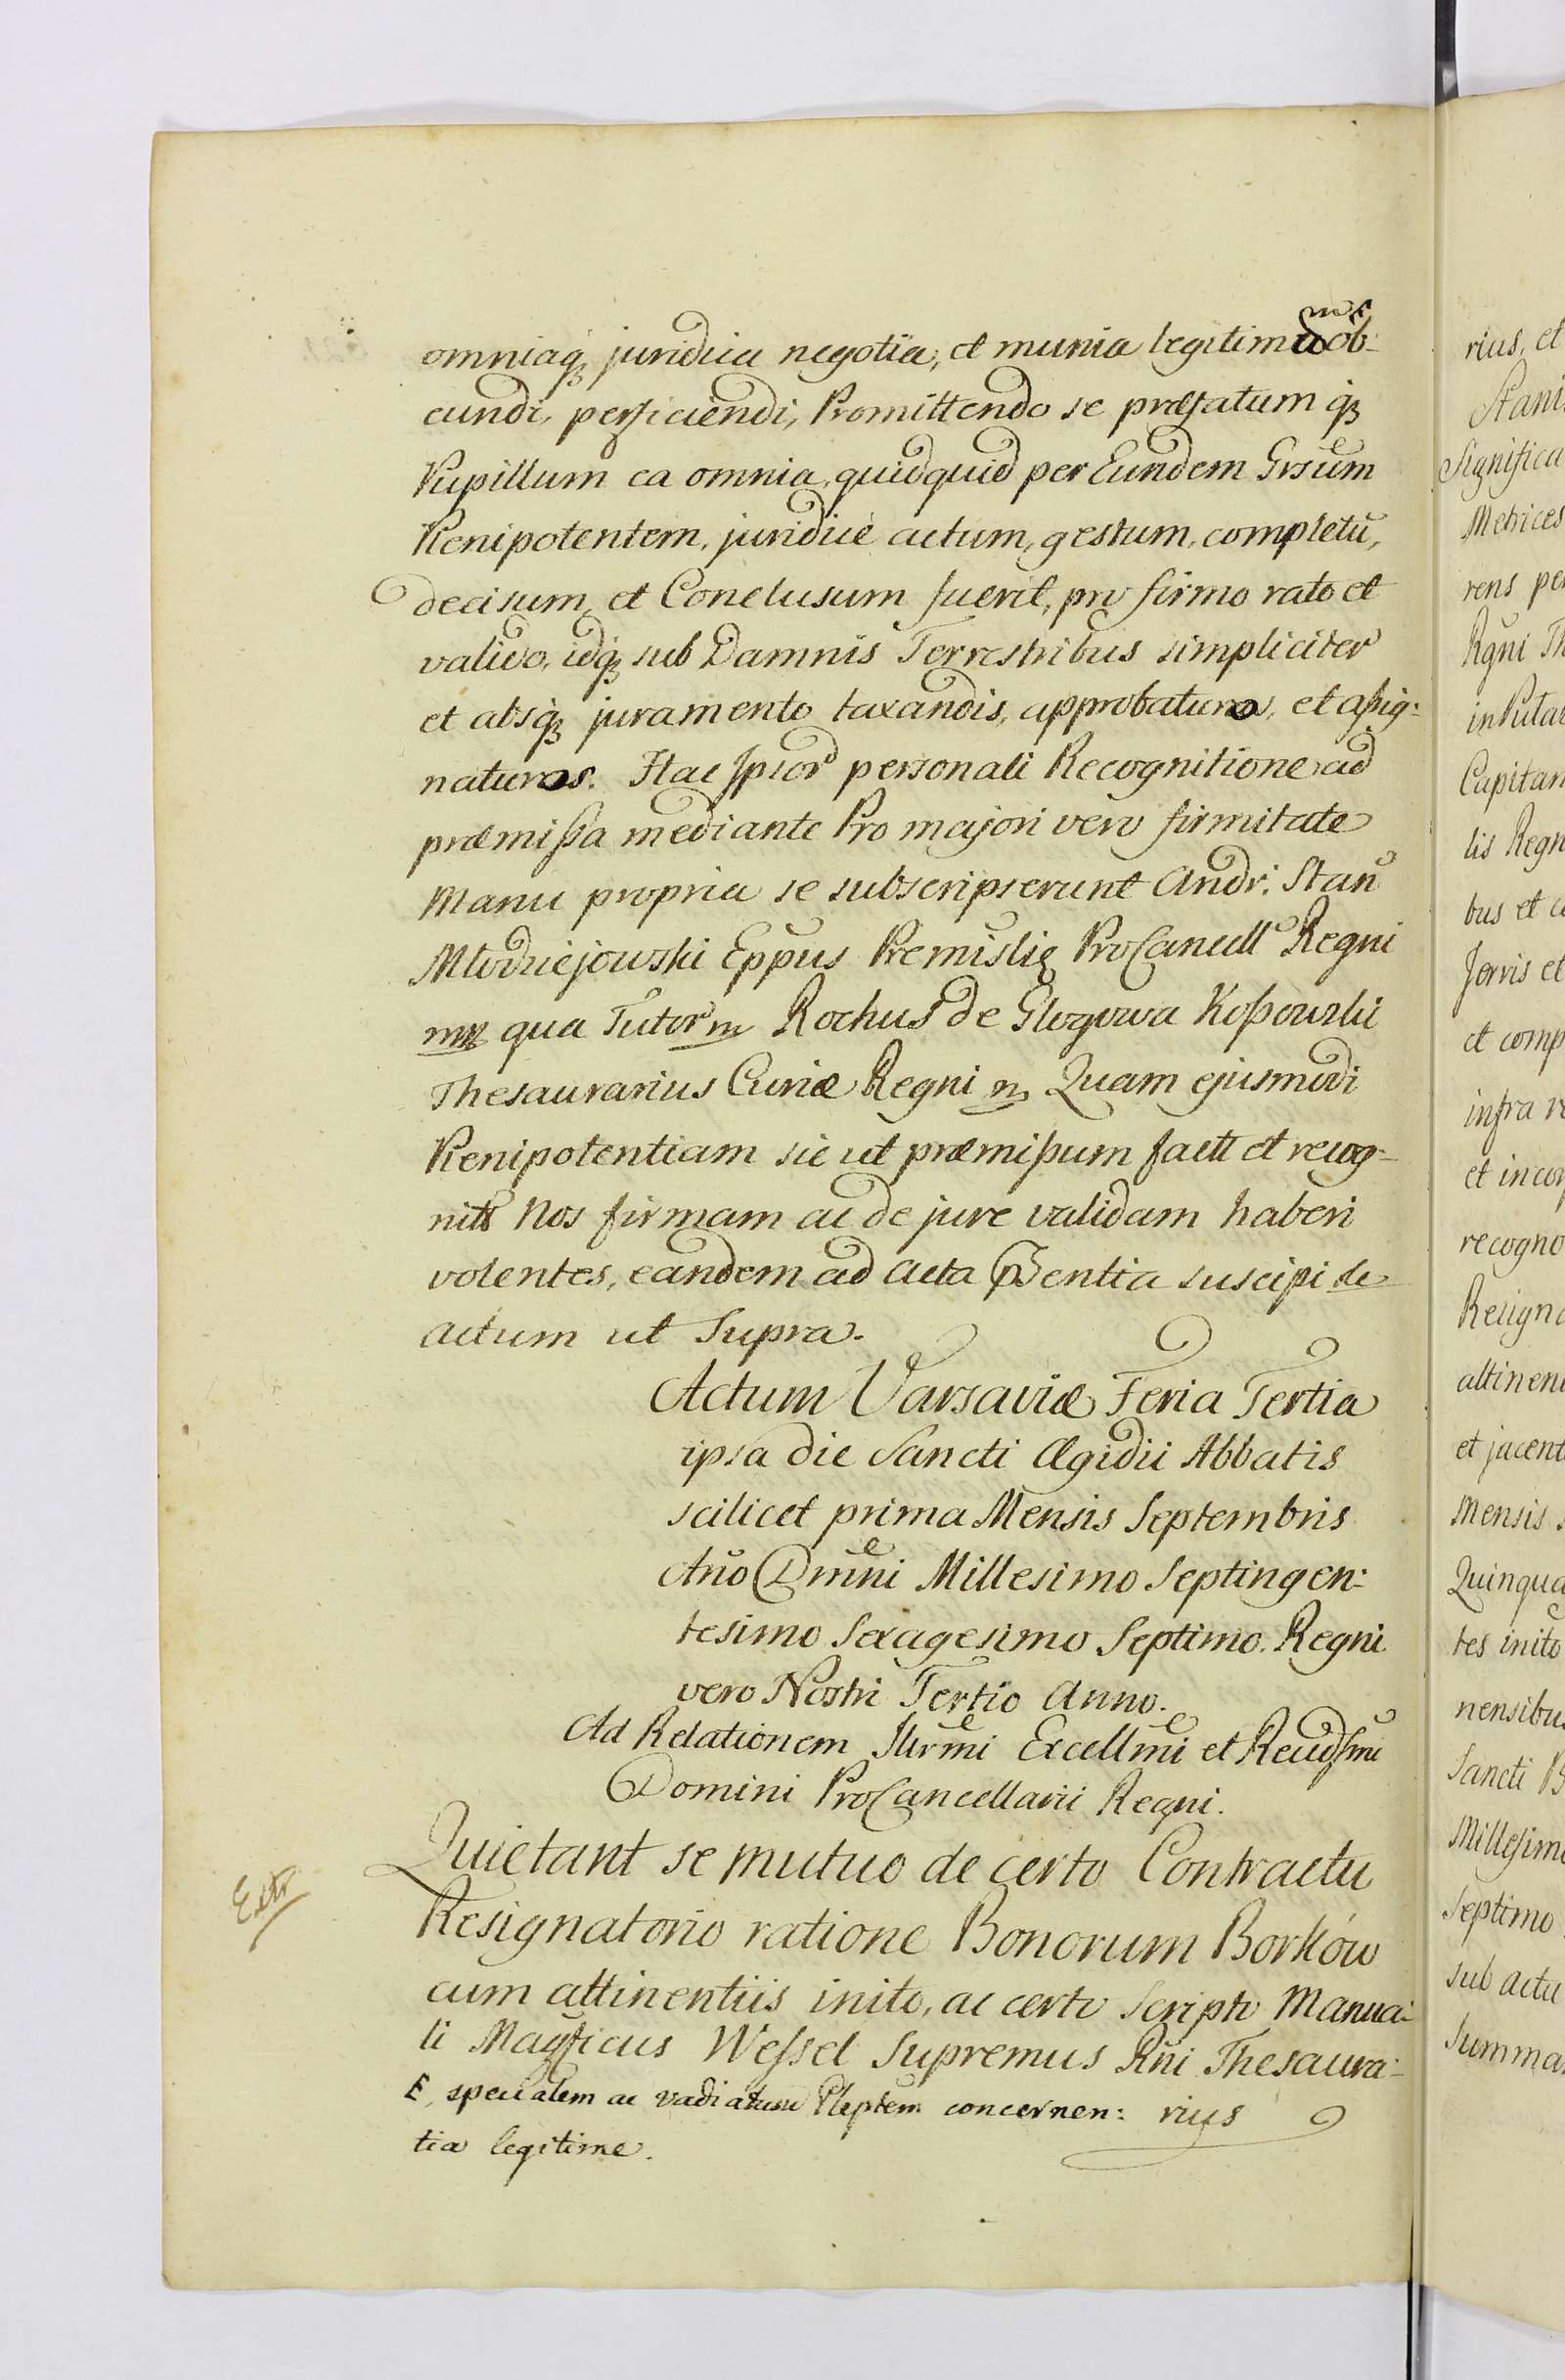 omniaq; juridica negotia, et munia legitima ob:
eundi, perficiendi, Promittendo se præfatum q;
Pupillum ea omnia, quidquid per Eundem Grsum
Plenipotentem, juridice actum, gestum, completũ,
decisum, et Conclusum fuerit, pro firmo rato et
valido, idq; sub Damnis Terrestribus simpliciter
et absq; juramento taxandis, approbaturos, et assig:
naturos. Hac Ipsor personali Recognitione ad
præmissa mediante Pro majori vero firmitate
Manu propria se subscripserunt Andr: Stan
Młodziejowski Eppus Premislię ProCancell Regni
mp qua Tutor m Rochus de Głogowa Kossowski
Thesaurarius Curiæ Regni m Quam ejusmodi
Plenipotentiam sic ut præmissum factt et recog:
nitt Nos firmam ac de jure validam haberi
volentes, eandem ad Acta psentia suscipi de
actum ut Supra.
Actum Varsaviæ Feria Tertia
ipsa die Sancti Ægidii Abbatis
scilicet prima Mensis Septembris
Año Dmni Millesimo Septingen:
tesimo Sexagesimo Septimo. Regni
vero Nostri Tertio Anno.
Ad Relationem Illrmi Excellmi et Reudssmi
Domini ProCancellarii Regni.
Extr
Quietant se mutuo de certo Contractu
Resignatorio ratione Bonorum Borków
cum attinentiis inito, ac certo Scripto Manua:
li Magficus Wessel Supremus Rñi Thesaura:
F, specialem ac vadiatum Plleptem concernen: rius
tia legitime.
rius, et
Stani
Significa
Metrices
rens per
Rgni Th
Capitan
lis Regn
bus et
Jervis et
et comp
infra
et incor
recogno
Resigna
attinen
et jacent
Mensis
Quinqua
tes inito
nensibus
Sancti B
Millesimo
Septimo
sub actu
Summa